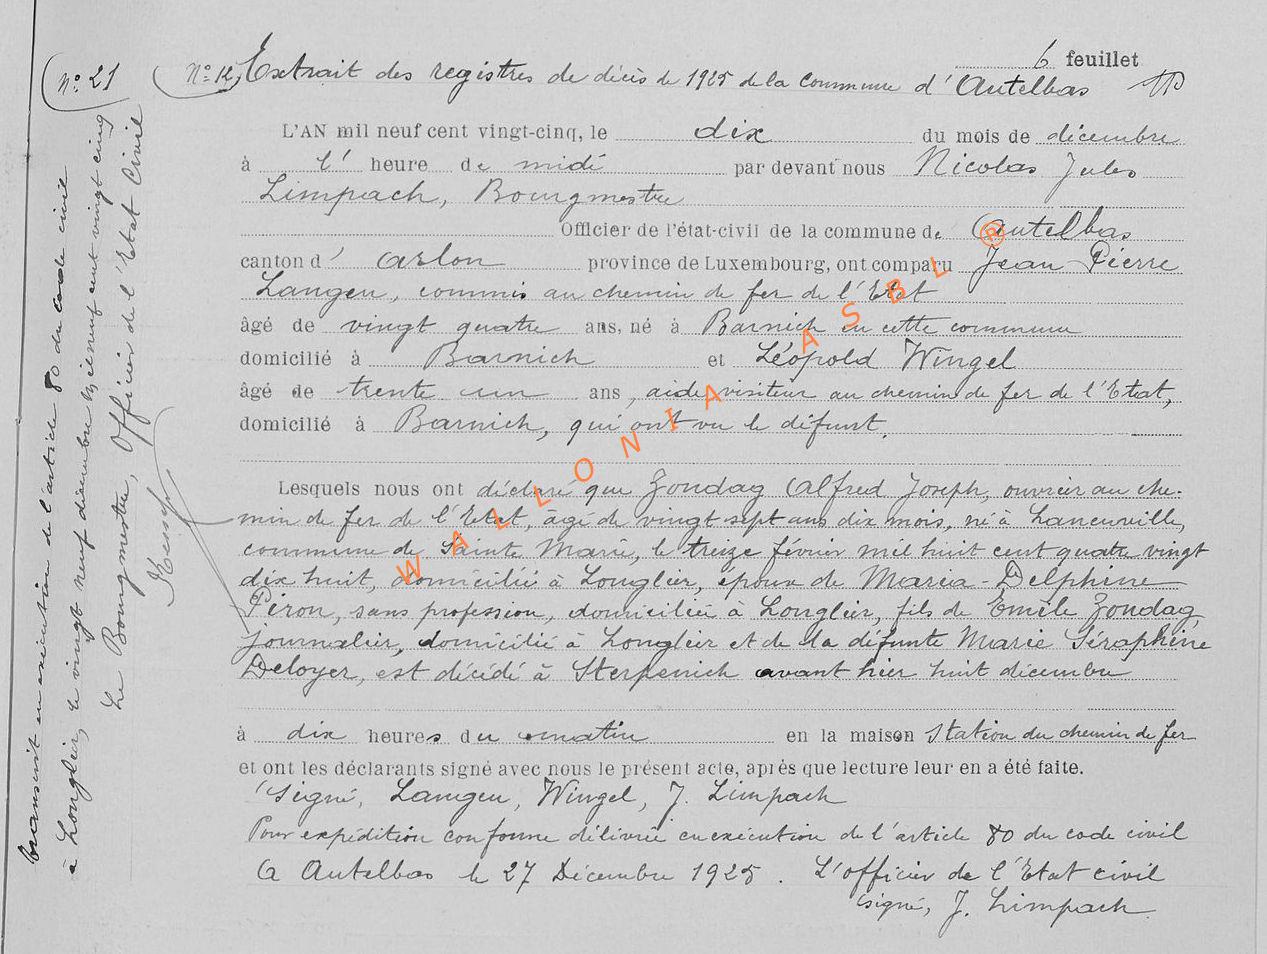 6 feuillet
N° 21
N° 12) Extrait des registres de décès de 1925 de la Commune d'Autelbas
L'AN mil neuf cent vingt-cinq, le dix du mois de décembre
à l' heure de midi par devant nous Nicolas Jules
Limpach, Bourgmestre
Officier de l'état-civil de la commune de Autelbas
canton d' Arlon province de Luxembourg, ont comparu Jean Pierre
Langen, commis au chemin de fer de l'Etat
âgé de vingt quatre ans, né à Barnich en cette commune
domicilié à Barnich et Léopold Wingel
âgé de trente un ans, aide visiteur au chemin de fer de l'Etat,
domicilié à Barnich, qui ont vu le défunt.
Lesquels nous ont déclaré que Zondag Alfred Joseph, ouvrier au che-
min de fer de l'Etat, âgé de vingt sept ans dix mois, né à Laneuville,
commune de Sainte Marie, le treize février mil huit cent quatre vingt
dix huit, domicilié à Longlier, époux de Maria-Delphine
Piron, sans profession, domiciliée à Longlier, fils de Emile Zondag,
journalier, domicilié à Longlier et de la défunte Marie Séraphine
Deloyer, est décédé à Sterpenich avant hier huit décembre
à dix heures du matin en la maison Station du chemin de fer
et ont les déclarants signé avec nous le présent acte, après que lecture leur en a été faite.
Signé, Langen, Wingel, J. Limpach
Pour expédition conforme délivrée en exécution de l'article 80 du code civil
A Autelbas le 27 Décembre 1925. L'officier de l'Etat civil
signé, J. Limpach
transcrit en exécution de l'article 80 du code civil
à Longlier, le vingt neuf décembre mil neuf cent vingt cinq
Le Bourgmestre, Officier de l'Etat Civil
WALLONIA ASBL ®